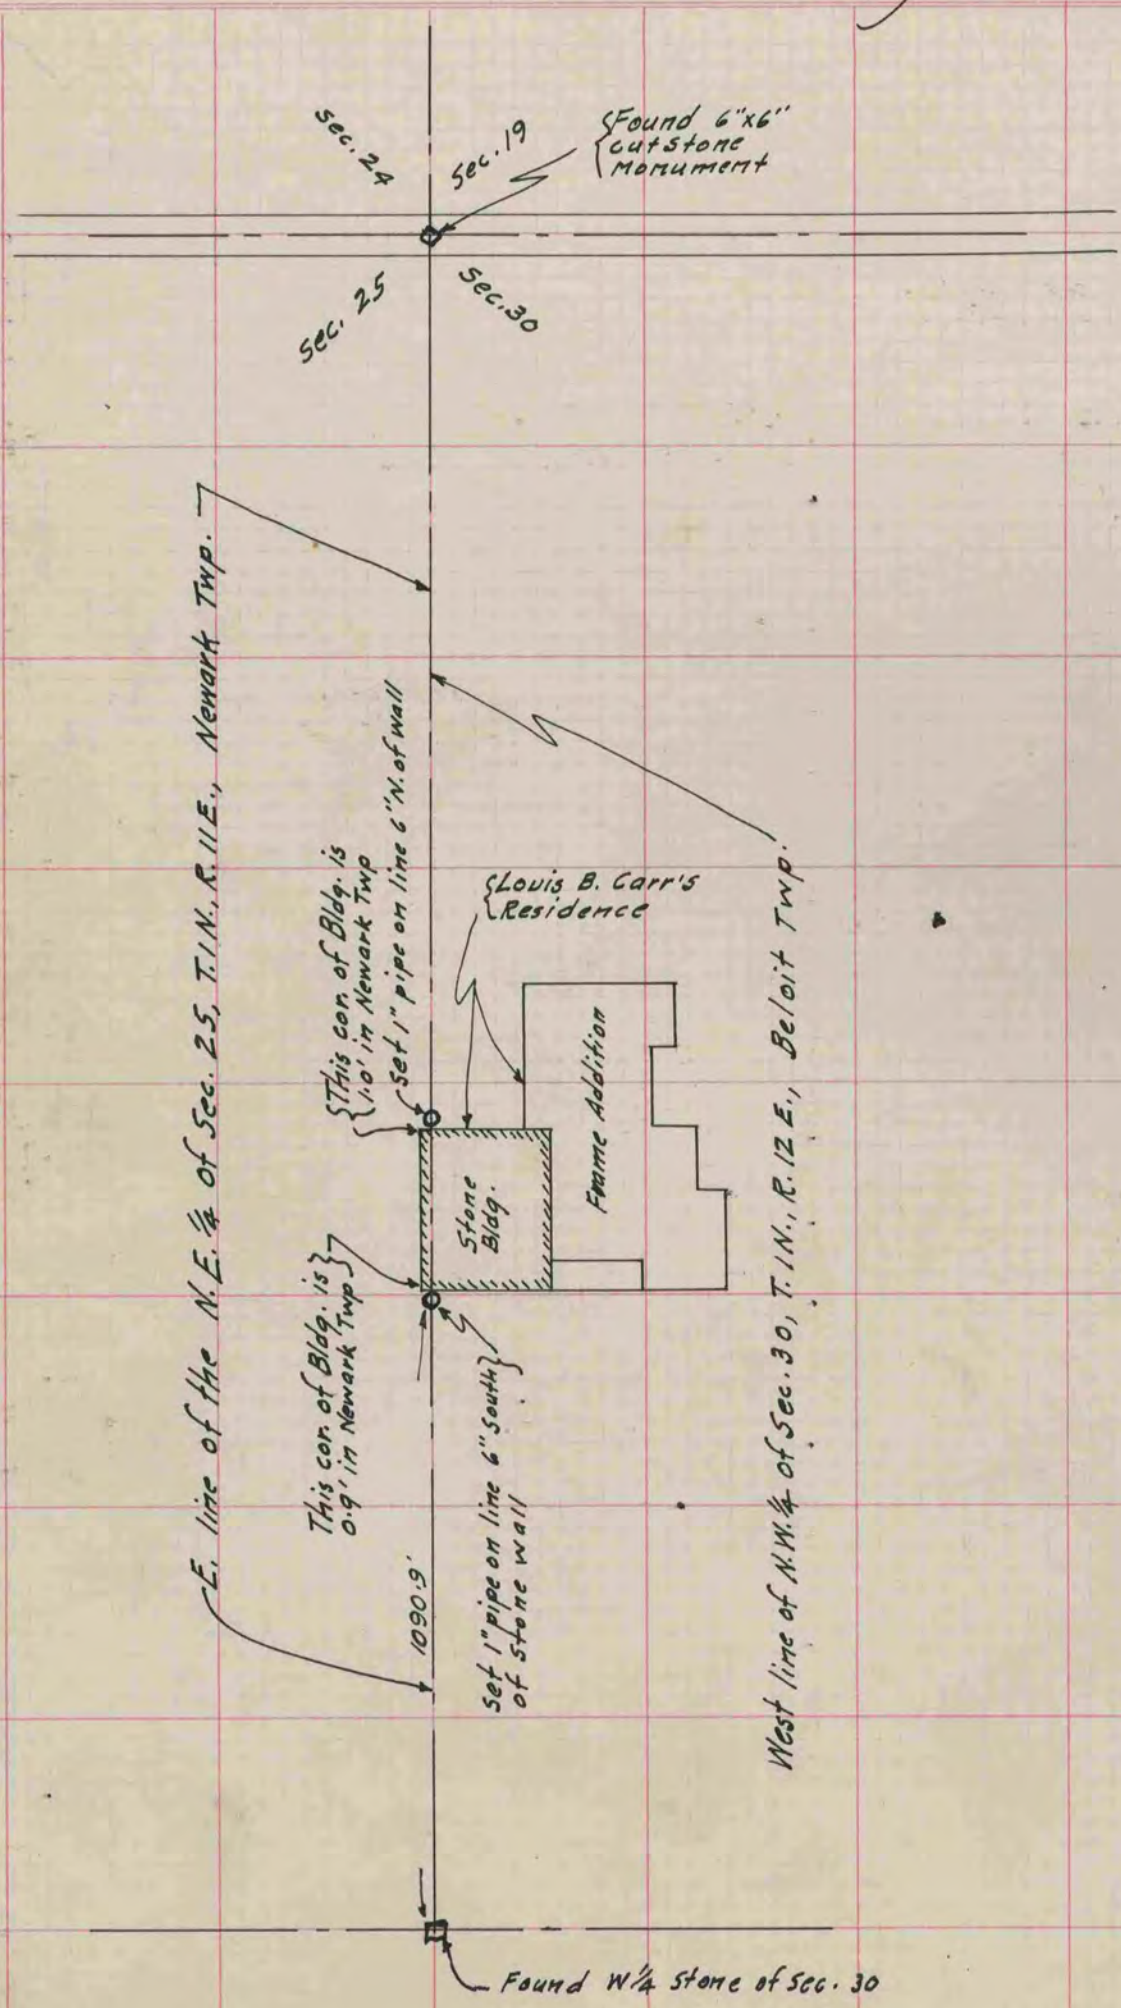 Sec. 24
Sec. 19
Found 6"x6"
cut stone
Monument
Sec. 25
Sec. 30
E. line of the N.E. 1/4 of Sec. 25, T.1N., R.11E., Newark Twp.
This cor. of Bldg. is
1.0' in Newark Twp
Set 1" pipe on line 6" N. of wall
Louis B. Carr's
Residence
Frame Addition
Stone
Bldg.
This cor. of Bldg. is
0.9' in Newark Twp
1090.9'
Set 1" pipe on line 6" South
of stone wall
West line of N.W. 1/4 of Sec. 30, T.1N., R.12E., Beloit Twp.
Found W 1/4 Stone of Sec. 30